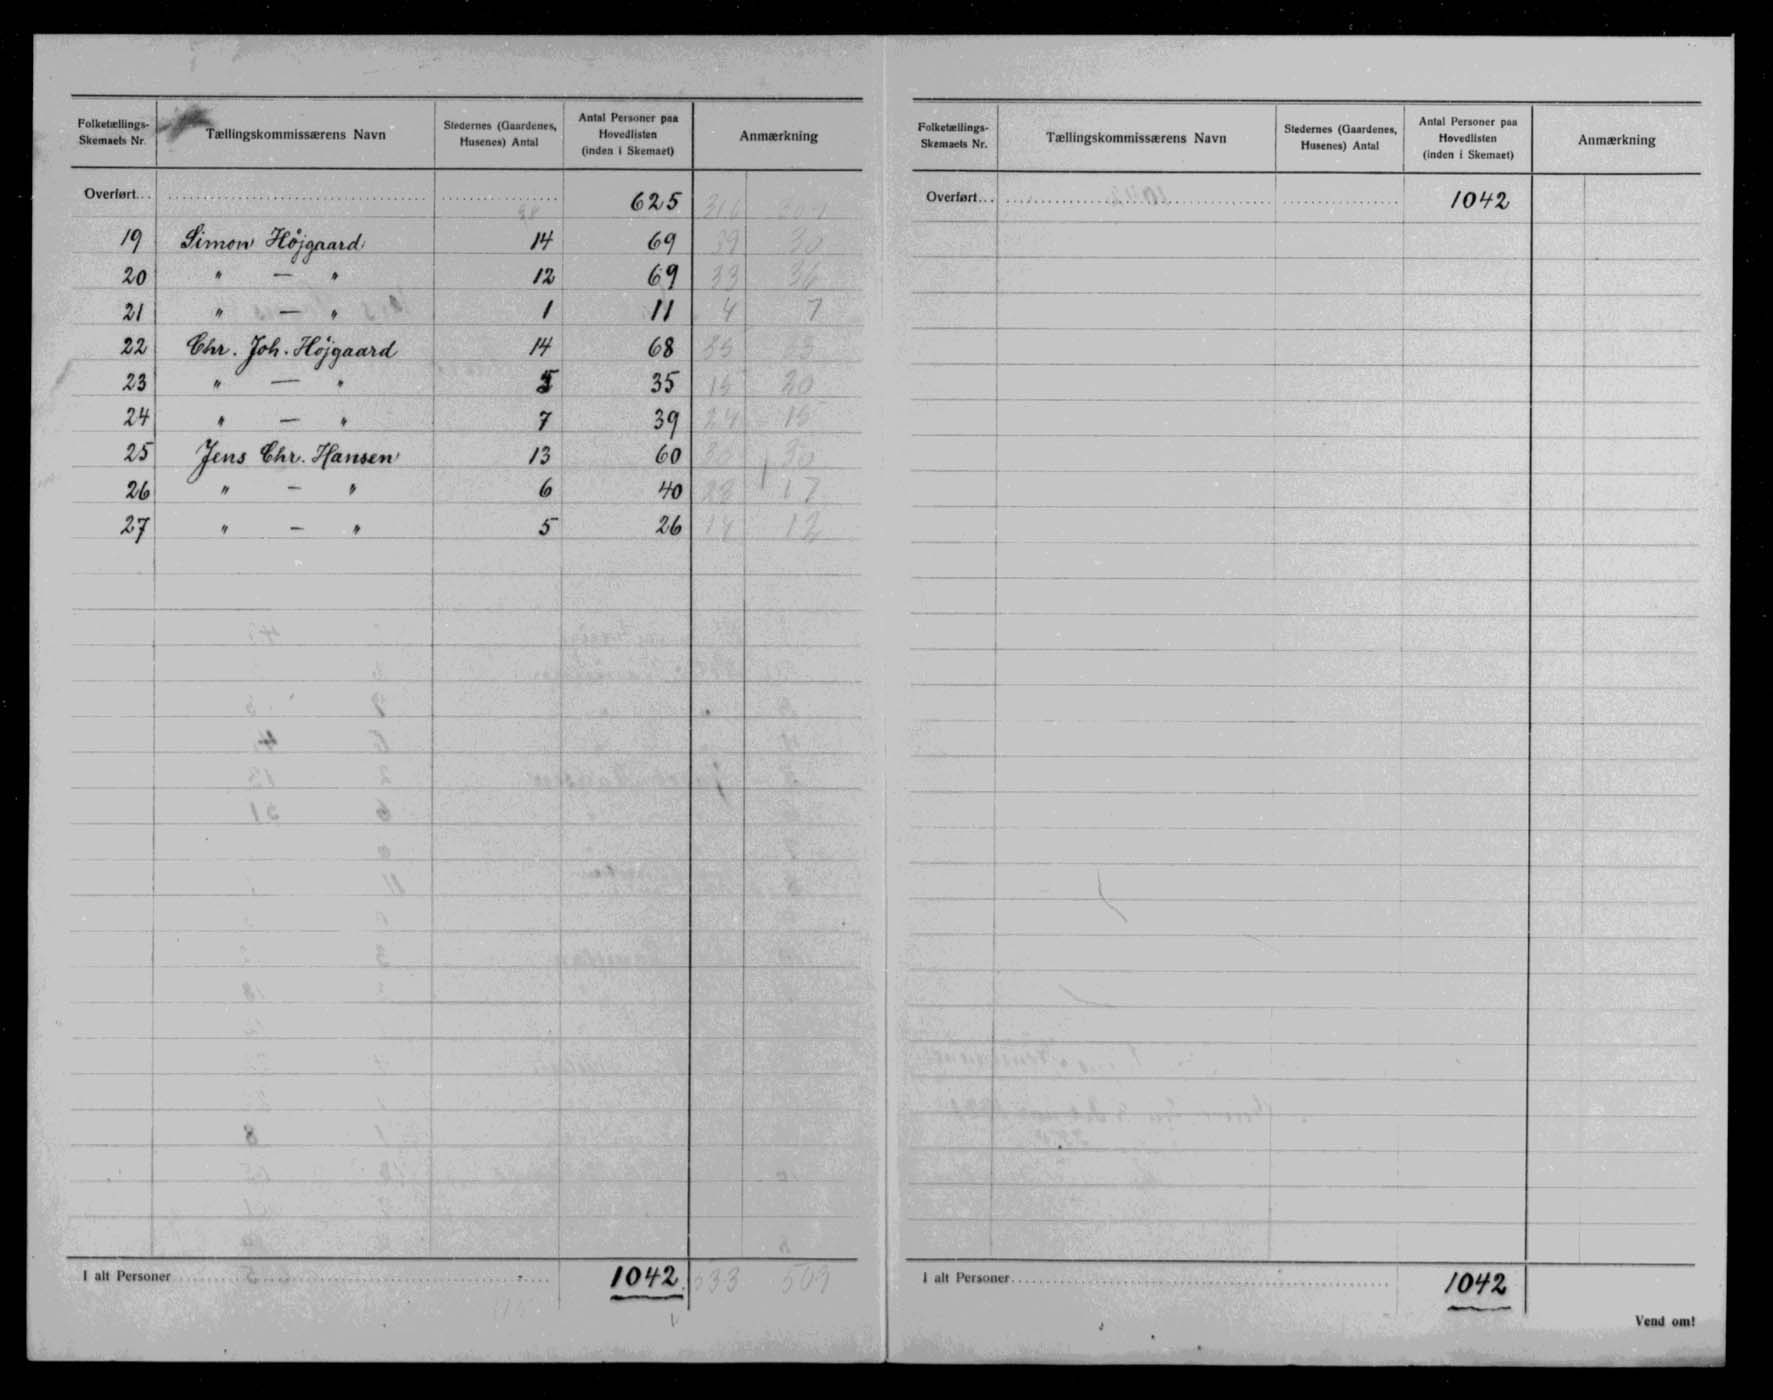 Folketællings-Skemaets Nr. Tællingskommissærens Navn Stedernes (Gaardenes, Husenes) Antal Antal Personer paa Hovedlisten (inden i Skemaet) Anmærkning
Overført... 625
19 Simon Højgaard 14 69 39 30
20 " — " 12 69 33 36
21 " — " 1 11 4 7
22 Chr. Joh. Højgaard 14 68
23 " — " 5 35 15 20
24 " — " 7 39 24 15
25 Jens Chr. Hansen 13 60 30
26 " — " 6 40 17
27 " — " 5 26 14 12
I alt Personer 1042 533 509
Folketællings-Skemaets Nr. Tællingskommissærens Navn Stedernes (Gaardenes, Husenes) Antal Antal Personer paa Hovedlisten (inden i Skemaet) Anmærkning
Overført... 1042
I alt Personer 1042
Vend om!